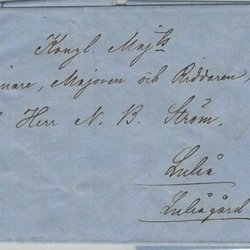 Kongl. Maj:ts
inare, Majoren och Riddaren,
Herr N. B. Ström.
Luleå
Luleågård